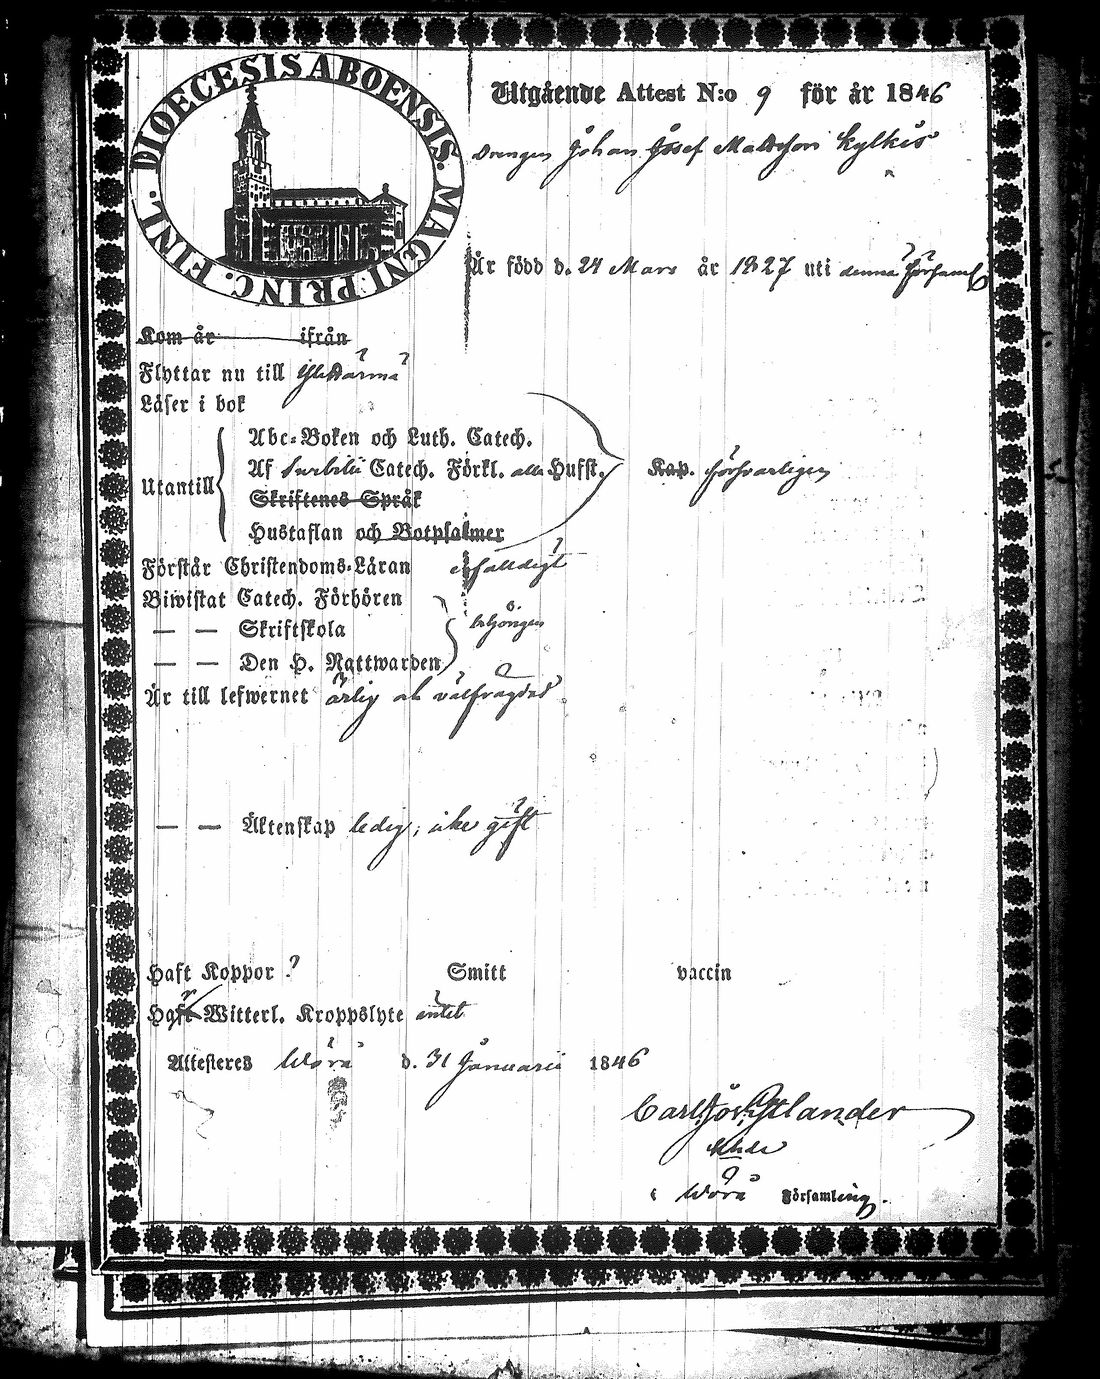 DIOECESIS ABOENSIS. MAGNI PRINC. FINL.
Utgående Attest N:o 9 för år 1846
Drengen Johan Josef Mattsson Kylkis
Är född d. 24 Mars år 1827 uti denna Församl
Kom år ifrån
Flyttar nu till Ylistarmå
Läser i bok
Abc-Boken och Luth. Catech.
Utantill Af Catech. Förkl. alla Husft. Kap. försvarligen
Skriftenes Språk
Hustaflan och Botpsalmer
Förstår Christendoms-Läran enfalldigt
Biwistat Catech. Förhören
— — Skriftskola behörigen
— — Den H. Nattwarden
Är till lefwernet ärlig och välfrägdad
— — Äktenskap ledig, icke gift
Haft Koppor ? Smitt vaccin
Haft Witterl. Kroppslyte intet
Attesteres Wörå d. 31 Januarii 1846
Carl Ytlander
i Wörå Församling.